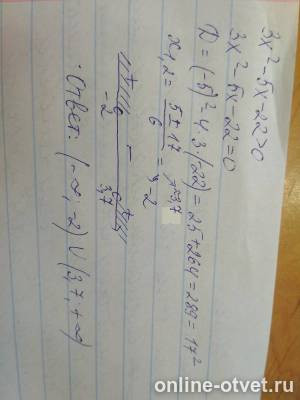 3x² - 5x - 22 > 0
3x² - 5x - 22 = 0
D = (-5)² - 4·3·(-22) = 25 + 264 = 289 = 17²
x1,2 = (5 ± 17)/6 = 3,7
-2
+ - +
-2 3,7
Ответ: (-∞; -2) ∪ (3,7; +∞)
online-otvet.ru